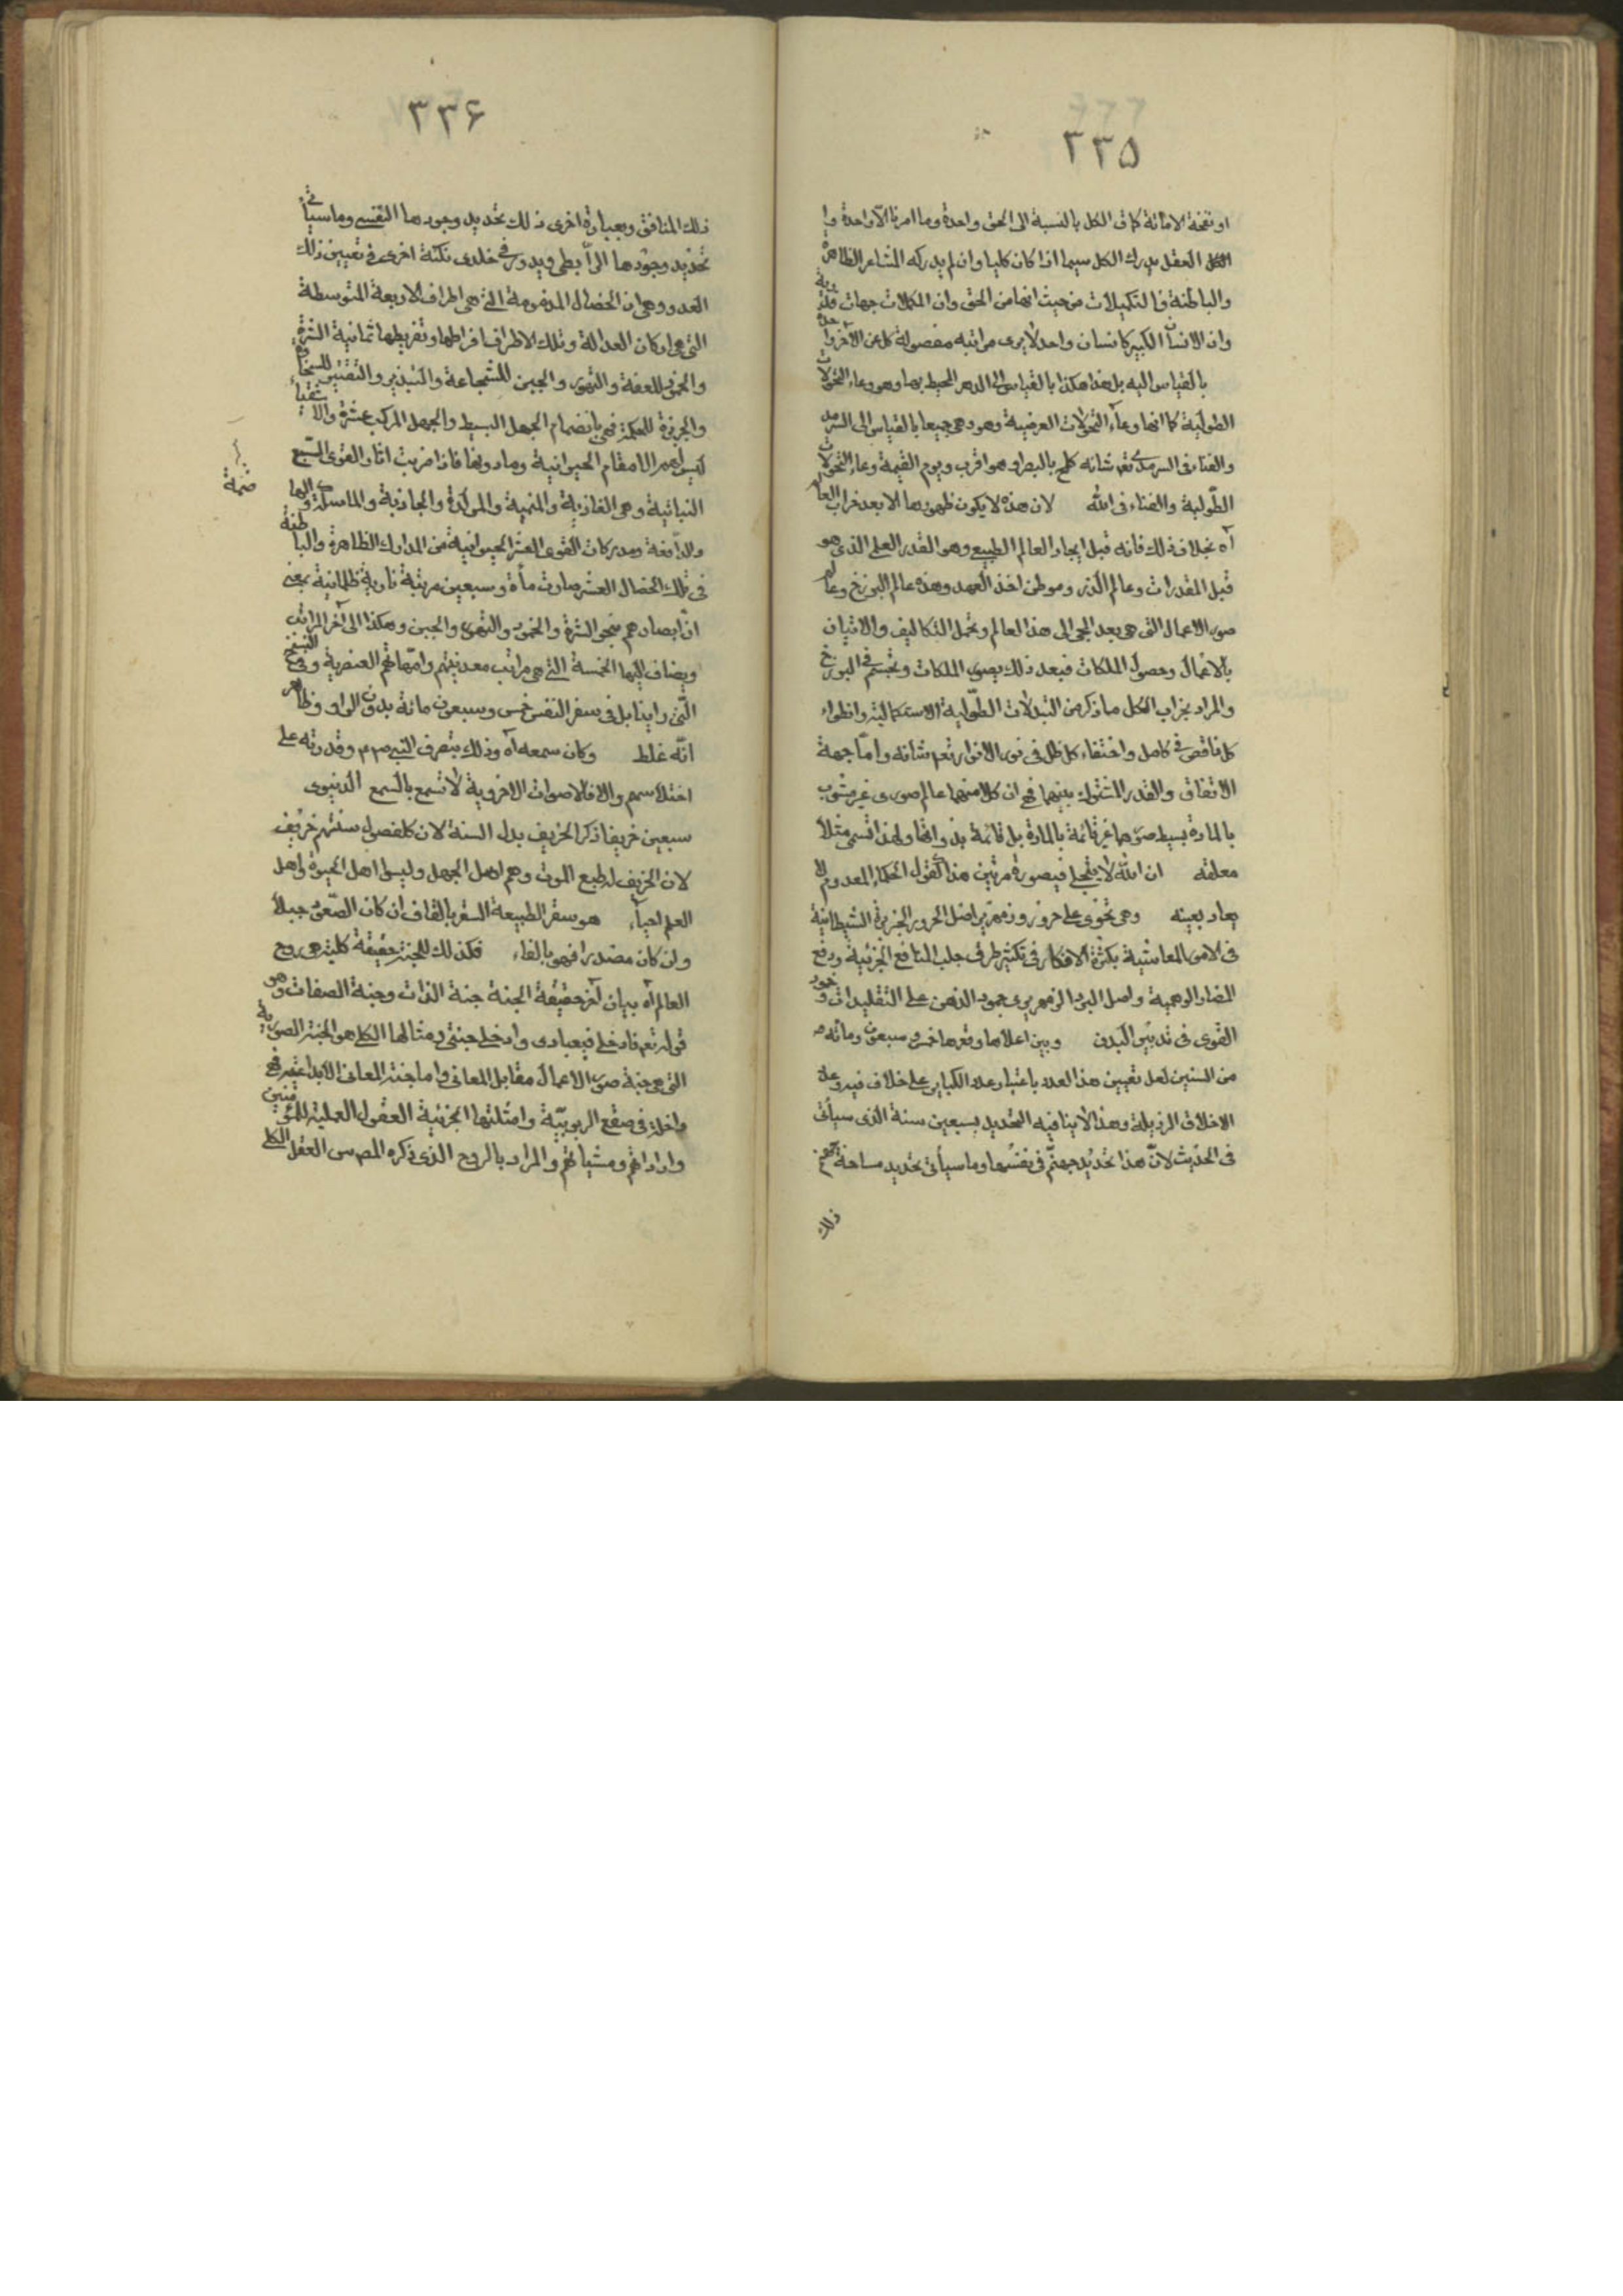 ٣٣٥
او نفخة الاماتة كما فى الكل بالنسبة الى الحق واحدة وما امرنا الا واحدة وا
العقل يدرك الكل سيما اذا كان كليا وان لم يدركه المشاعر الظاهرة
والباطنة فالتكميلات من حيث انها من الحق وان المكملات جهات
وان الانسان الكبير كانسان واحد لا يرى مراتبه مفصولة كل عن الآخر
بالقياس اليه بل هذا هكذا بالقياس الى الدهر المحيط بها وهو وعاء التحولات
الطولية كما انها وعاء التحولات العرضية وهو وهى جميعا بالقياس الى السرمد
والفناء فى السرمد تعم شانه كلمح بالبصر او هو اقرب ويوم القيمة وعاء التحولات
الطّولية والفناء فى الله لان هذه لا يكون ظهورها الا بعد خراب العالم
آه بخلاف ذلك فانه قبل ايجاد العالم الطبيعى وهو القدر العلمى الذى هو
قبل المقدرات وعالم الذر وموطن اخذ العهد وهذه عالم البرزخ وعالم
صور الاعمال التى هى بعد المجى الى هذا العالم وتحمل التكاليف والاتيان
بالاعمال وحصول الملكات فبعد ذلك يصور الملكات وتجسم فى البرزخ
والمراد بخراب الكل ما ذكر من التبدلات الطّولية الاستكمالية وانطواء
كل ناقص فى كامل واختفاء كل ظل فى نور الانوار تعم شانه وامّا جهة
الاتفاق والقدر المشترك بينهما فهى ان كلا منهما عالم صورى غير مشوب
بالمادة بسيط صورها غير قائمة بالمادة بل قائمة بذواتها ولهذا تسمى مثلا
معلقة ان الله لا يتجلى فى صورة مرتين هذا كقول الحكماء المعدوم لا
يعاد بعينه وهى تحوى على حرور وزمهرير اصل الحرور الجربزة الشيطانية
فى الامور المعاشية بكثرة الافكار فى تكثير طرق جلب المنافع الجزئية ودفع
المضار الوهمية واصل البرد الزمهريرى جمود الذهن على التقليدات وخمود
القوى فى تدبير البدن وبين اعلاها وقعرها خمس وسبعون ومائة
من السنين لعل تعيين هذا العدد باعتبار عدد الكباير على خلاف فيه وعدد
الاخلاق الرذيلة وهذا لا ينافيه التحديد بسبعين سنة الذى سيأتى
فى الحديث لانّ هذا تحديد جهنّم فى نفسها وما سيأتى تحديد مساحة
ذلك
٣٣۶
ذلك المنافق وبعبارة اخرى ذلك تحديد وجودها النفسى وما سيأتى
تحديد وجودها الرّابطى ويدور فى خلدى نكتة اخرى فى تعيين ذلك
العدد وهى ان الخصال المذمومة التى هى اطراف الاربعة المتوسطة
التى هى اركان العدالة وتلك الاطراف افراطها وتفريطها ثمانية الشره
والخمود للعفة والتهور والجبن للشجاعة والتبذير والتقتير للسخاء
والجربزة للحكمة فهى بانضمام الجهل البسيط والجهل المركب عشرة والاشقياء
ليس لهم الا مقام الحيوانية وما دونها فاذا ضربت اثار القوى السّبع
النباتية وهى الغاذية والمنمية والمولدة والجاذبة والماسكة والهاضمة
والدافعة ومدركات القوى العشر الحيوانية من المدارك الظاهرة والباطنة
فى تلك الخصال العشر صارت مأة وسبعين مرتبة نارية ظلمانية بمعنى
انّ ابصارهم بنحو الشره والخمود والتهور والجبن وهكذا الى آخر المراتب
ويضاف اليها الخمسة التى هى مراتب معدنيتهم وامّهاتهم العنصرية وفى النسخ
الّتى راينا بل فى سفر النفس خمس وسبعون مائة بدون الواو وظاهر
انّه غلط وكان سمعه آه وذلك بتصرف النبى ص م وقدرته على
اختلاسهم والا فالاصوات الاخروية لا تسمع بالسمع الدنيوى
سبعين خريفا ذكر الخريف بدل السنة لان كل فصول سنتهم خريف
لان الخريف له طبع الموت وهم اهل الجهل وليسوا اهل الحيوة واهل
العلم احياء هو سقر الطبيعة السقر بالقاف ان كان الصّعود جبلا
وان كان مصدرا فهو بالفاء فكذلك للجنة حقيقة كلية هى روح
العالم آه بيان آخر حقيقة الجنة جنة الذات وجنة الصفات وهو
قوله تعم فادخلى فى عبادى وادخلى جنتى ومثالها الكلى هو الجنة الصورية
التى هى جنة صور الاعمال مقابل المعانى واما جنة المعانى الابداعية فهى
داخلة فى صقع الربوبيّة وامثلتها الجزئية العقول العملية للمؤمنين
واراداتهم ومشياتهم والمراد بالروح الذى ذكره المص س العقل الكلى